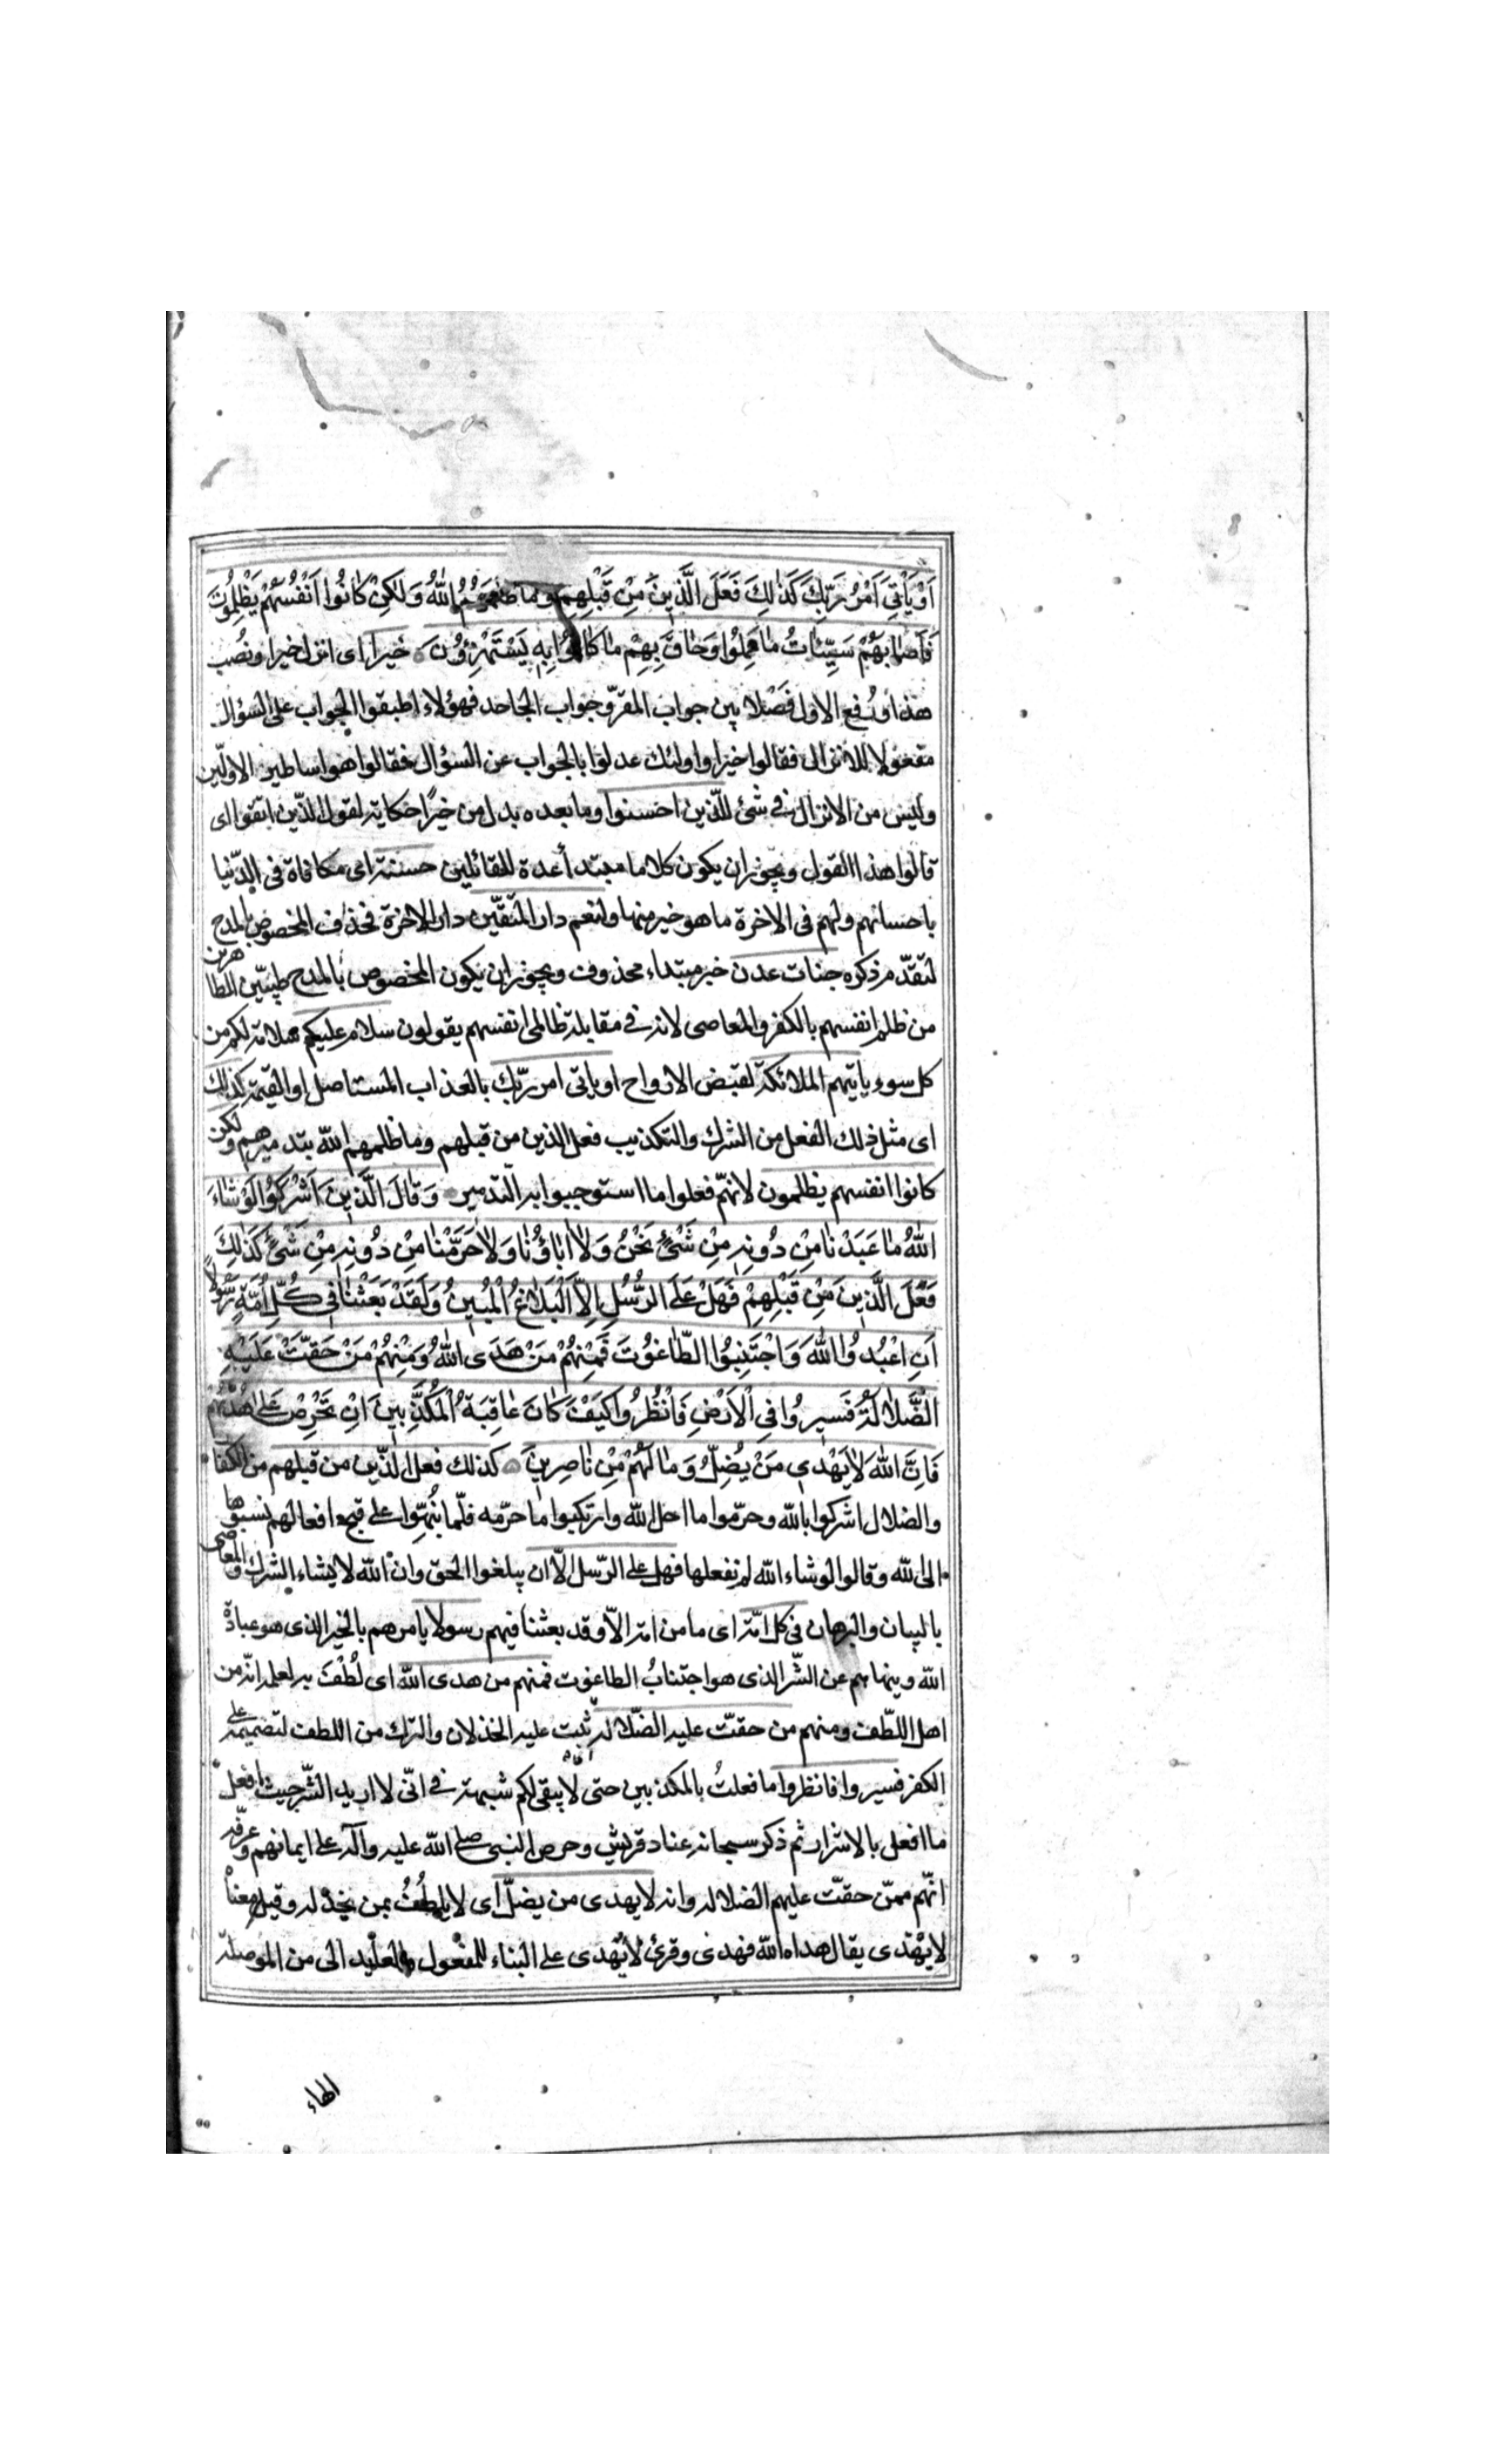 اَوْ يَأْتِىَ اَمْرُ رَبِّكَ كَذٰلِكَ فَعَلَ الَّذينَ مِنْ قَبْلِهِمْ وَما ظَلَمَهُمُ اللهُ وَلٰكِنْ كانُوا اَنْفُسَهُمْ يَظْلِمُونَ
فَاَصابَهُمْ سَيِّئاتُ ما عَمِلُوا وَحاقَ بِهِمْ ما كانُوا بِهِ يَسْتَهْزِؤُنَ خيرا اى انزل خيرا ونُصب
هذا ورُفع الاول فَصْلا بين جواب المقرّ وجواب الجاحد فهؤلاء اطبقوا الجواب على السؤال
مفعولا للانزال فقالوا خيرا واولئك عدلوا بالجواب عن السؤال فقالوا هو اساطير الاوّلين
وليس من الانزال فى شئ للّذين احسنوا وما بعده بدل من خيرًا حكاية لقول الّذين اتقوا اى
قالوا هذا القول ويجوز ان يكون كلاما مبتدأ عدة للقائلين حسنة اى مكافاة فى الدّنيا
باحسانهم ولهم فى الاخرة ما هو خير منها ولنعم دار المتقّين دار الاخرة فحذف المخصوص بالمدح
لتقدّم ذكره جنات عدن خبر مبتداء محذوف ويجوز ان يكون المخصوص بالمدح طيبّين الطاهرين
من ظلم انفسهم بالكفر والمعاصى لانه فى مقابلة ظالمى انفسهم يقولون سلام عليكم سلامة لكم من
كل سوء ياتيهم الملائكة لقبض الارواح او ياتى امر ربّك بالعذاب المستاصل او القيمة كذلك
اى مثل ذلك الفعل من الشرك والتكذيب فعل الذين من قبلهم وما ظلمهم الله بتدميرهم ولكن
كانوا انفسهم يظلمون لانهّم فعلوا ما استوجبوا به التدمير وَقالَ الَّذينَ اَشْرَكُوا لَوْ شاءَ
اللهُ ما عَبَدْنا مِنْ دُونِهِ مِنْ شَئٍْ نَحْنُ وَلا اباؤُنا وَلا حَرَّمْنا مِنْ دُونِهِ مِنْ شَئٍْ كَذٰلِكَ
فَعَلَ الَّذينَ مِنْ قَبْلِهِمْ فَهَلْ عَلَى الرُّسُلِ اِلاَّ الْبَلاغُ الْمُبينُ وَلَقَدْ بَعَثْنا فى كُلِّ اُمَّةٍ رَسُولاً
اَنِ اعْبُدُوا اللهَ وَاجْتَنِبُوا الطّاغُوتَ فَمِنْهُمْ مَنْ هَدَى اللهُ وَمِنْهُمْ مَنْ حَقَّتْ عَلَيْهِ
الضَّلالَةُ فَسيرُوا فِى الْاَرْضِ فَانْظُرُوا كَيْفَ كانَ عاقِبَةُ الْمُكَذِّبينَ اِنْ تَحْرِصْ عَلى هُديهُمْ
فَاِنَّ اللهَ لا يَهْدى مَنْ يُضِلُّ وَما لَهُمْ مِنْ ناصِرينَ كذلك فعل الّذين من قبلهم من الكفار
والضلال اشركوا بالله وحرّموا ما احل الله وارتكبوا ما حرّمه فلّما نُبّهوا على قبح افعالهم نسبوها
الى الله وقالوا لو شاء الله لم نفعلها فهل على الرّسل الّا ان يبلغوا الحق وان الله لا يشاء الشرك والمعاصى
بالبيان والبرهان فى كل امّة اى ما من امة الاّ وقد بعثنا فيهم رسولا يامرهم بالخير الذى هو عبادة
الله وينهاهم عن الشّر الذى هو اجتنابُ الطاغوت فمنهم من هدى الله اى لُطْفَ به لعلمه انّه من
اهل اللطّف ومنهم من حقتّ عليه الضّلالة ثبت عليه الخذلان والترك من اللطف لتصميمه على
الكفر فسيروا فانظروا ما فعلتُ بالمكذبين حتى لا يبقى لكم شبهة فى انّى لا اريد الشّر حيث افعل
ما افعل بالاشرار ثم ذكر سبحانه عناد قريش وحرص النبى صلى الله عليه وآله على ايمانهم وعرّفه
انهّم ممنّ حقتّ عليهم الضلالة وانه لا يهدى من يضلّ اى لا يلطُفُ بمن يخذله وقيل معناه
لا يَهْتدى يقال هداه الله فهدى وقرئ لا يُهدى على البناء للمفعول والعايد الى من الموصلة
الهاء